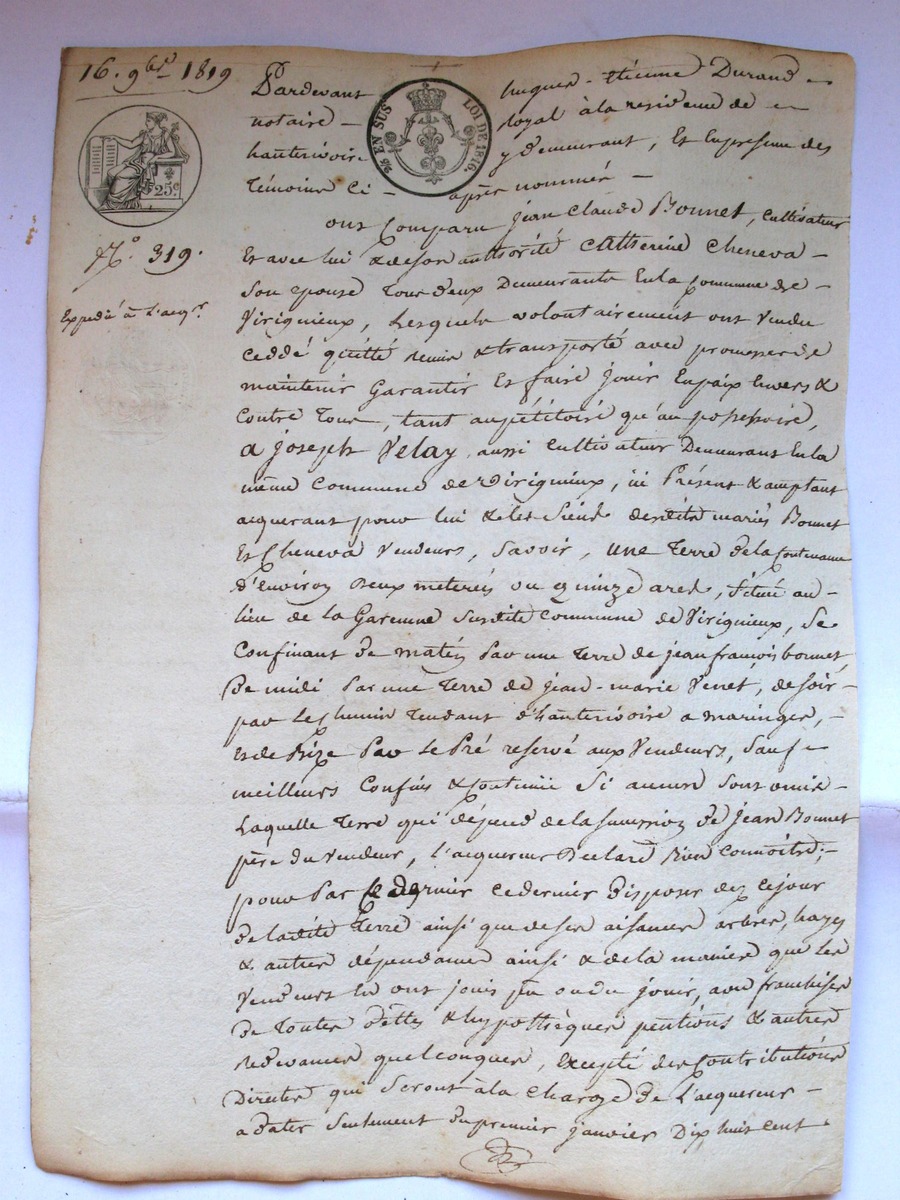 16. 9bre 1819
25c
N.o 319.
Expedié à L'acqr.
EN SUS
LOI DE 1816.
Pardevant hugues-Etienne Durand
notaire royal à la residence de
hauterivoire y demeurant, Et En presence des
Témoins Ci-après nommés
ont Comparu jean Claude Bonnet, cultivateur
Et avec lui & de son authorité Catherine Cheneva
Son epouse Tous deux Demeurants En la Commune de
Virigneux, Lesquels volontairement ont vendu
ceddé quitté remis & transporté avec promesse de
maintenir Garantir Et faire jouir En paix Envers &
Contre Tous, tant au pétitoire qu'au possessoire,
a joseph Velay, aussi Cultivateur Demeurant En la
même Commune de Virigneux, ici Présent & acceptant
acquerant pour lui & les Siens desdits mariés Bonnet
Et Cheneva Vendeurs, Savoir, une Terre de la Contenance
d'Environ Deux meterés ou quinze ares, Située au
lieu de la Garenne Susdite Commune de Virigneux, Se
Confinant de matin Par une Terre de jean françois bonnet,
De midi Par une Terre de jean-marie Venet, de soir
par Le Chemin Tendant d'hauterivoire a maringes,
Et de Bize Par Le Pré reservé aux Vendeurs, Sauf
meilleurs Confins & Contenue Si aucuns Sont omis
Laquelle Terre qui dépend de la Succession de jean Bonnet
père du Vendeur, L'acquereur Declare Bien Connoitre;
pour Par ce dernier Disposer dez ce jour
de ladite Terre ainsi que de ses aisances arbres, hayes
& autres dépendances ainsi & de la maniere que Les
Vendeurs En ont jouis pu ou du jouir, avec franchises
De Toutes dettes & hypothèques pentions & autres
redevances quelconques, Excepté des Contributions
Directes qui Seront à la Charge de L'acquereur
a dater Seulement du premier janvier Dix huit cent